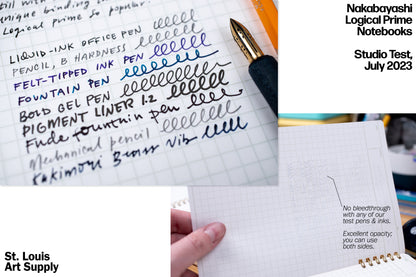 Nakabayashi
Logical Prime
Notebooks
Studio Test,
July 2023
still with
unique binding
Logical Prime so popular.
LIQUID-INK OFFICE PEN
PENCIL, B HARDNESS
FELT-TIPPED INK PEN
FOUNTAIN PEN
BOLD GEL PEN
PIGMENT LINER 1.2
Fude fountain pen
Mechanical pencil
Kakimori Brass Nib
No bleedthrough
with any of our
test pens & inks.
Excellent opacity;
you can use
both sides.
St. Louis
Art Supply